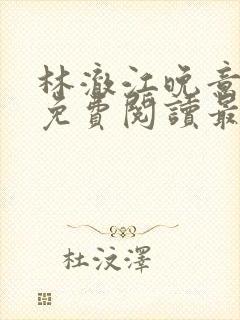 林澈江晚音
免費閱讀最
杜汶澤